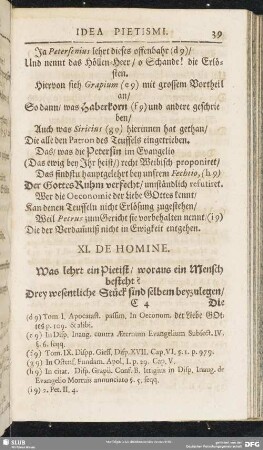 IDEA PIETISMI. 39
Ja Petersenius lehrt dieses offenbahr (d9)/
Und nennt das Höllen-Heer/ o Schande! die Erlö-
sten.
Hiervon sieh Grapium (e9) mit grossem Vortheil
an/
So dann/ was Haberkorn (f9) und andere geschrie
ben/
Auch was Siricius (g9) hierinnen hat gethan/
Die alle den Patron des Teuffels eingetrieben.
Das/ was die Petersen im Evangelio
(Das ewig bey Ihr heist/) recht Weibisch proponiret/
Das findstu hauptgelehrt bey unsrem Fechtio, (h9)
Der Gottes Ruhm verfecht/ umständlich refutiret.
Wer die Oeconomie der Liebe GOttes kennt/
Kan denen Teuffeln nicht Erlösung zugestehen/
Weil Petrus zum Gericht sie vorbehalten nennt/ (i9)
Die der Verdamniß nicht in Ewigkeit entgehen.
XI. DE HOMINE.
Was lehrt ein Pietist/ woraus ein Mensch
besteht?
Drey wesentliche Stück sind selbem beyzulegen/
C 4 Die
(d9) Tom I. Apocatast. passim, In Oeconom. der Liebe GOt-
tes p. 109. & alibi.
(e9) In Disp. Inaug. contra Æternum Evangelium Subsect. IV.
§. 6. seqq.
(f9) Tom. IX. Disp. Gieff. Disp. XVII. Cap. VI. §. 1. p. 979.
(g9) In Ostens. Fundam. Apol. I. p. 29. Cap. V.
(h9) In citat. Disp. Grapii. Conf. B. Ittigius in Disp. Inaug. de
Evangelio Mortuis annunciato §. 5. seqq.
(i9) 2. Pet. II, 4.
SLUB
DFG